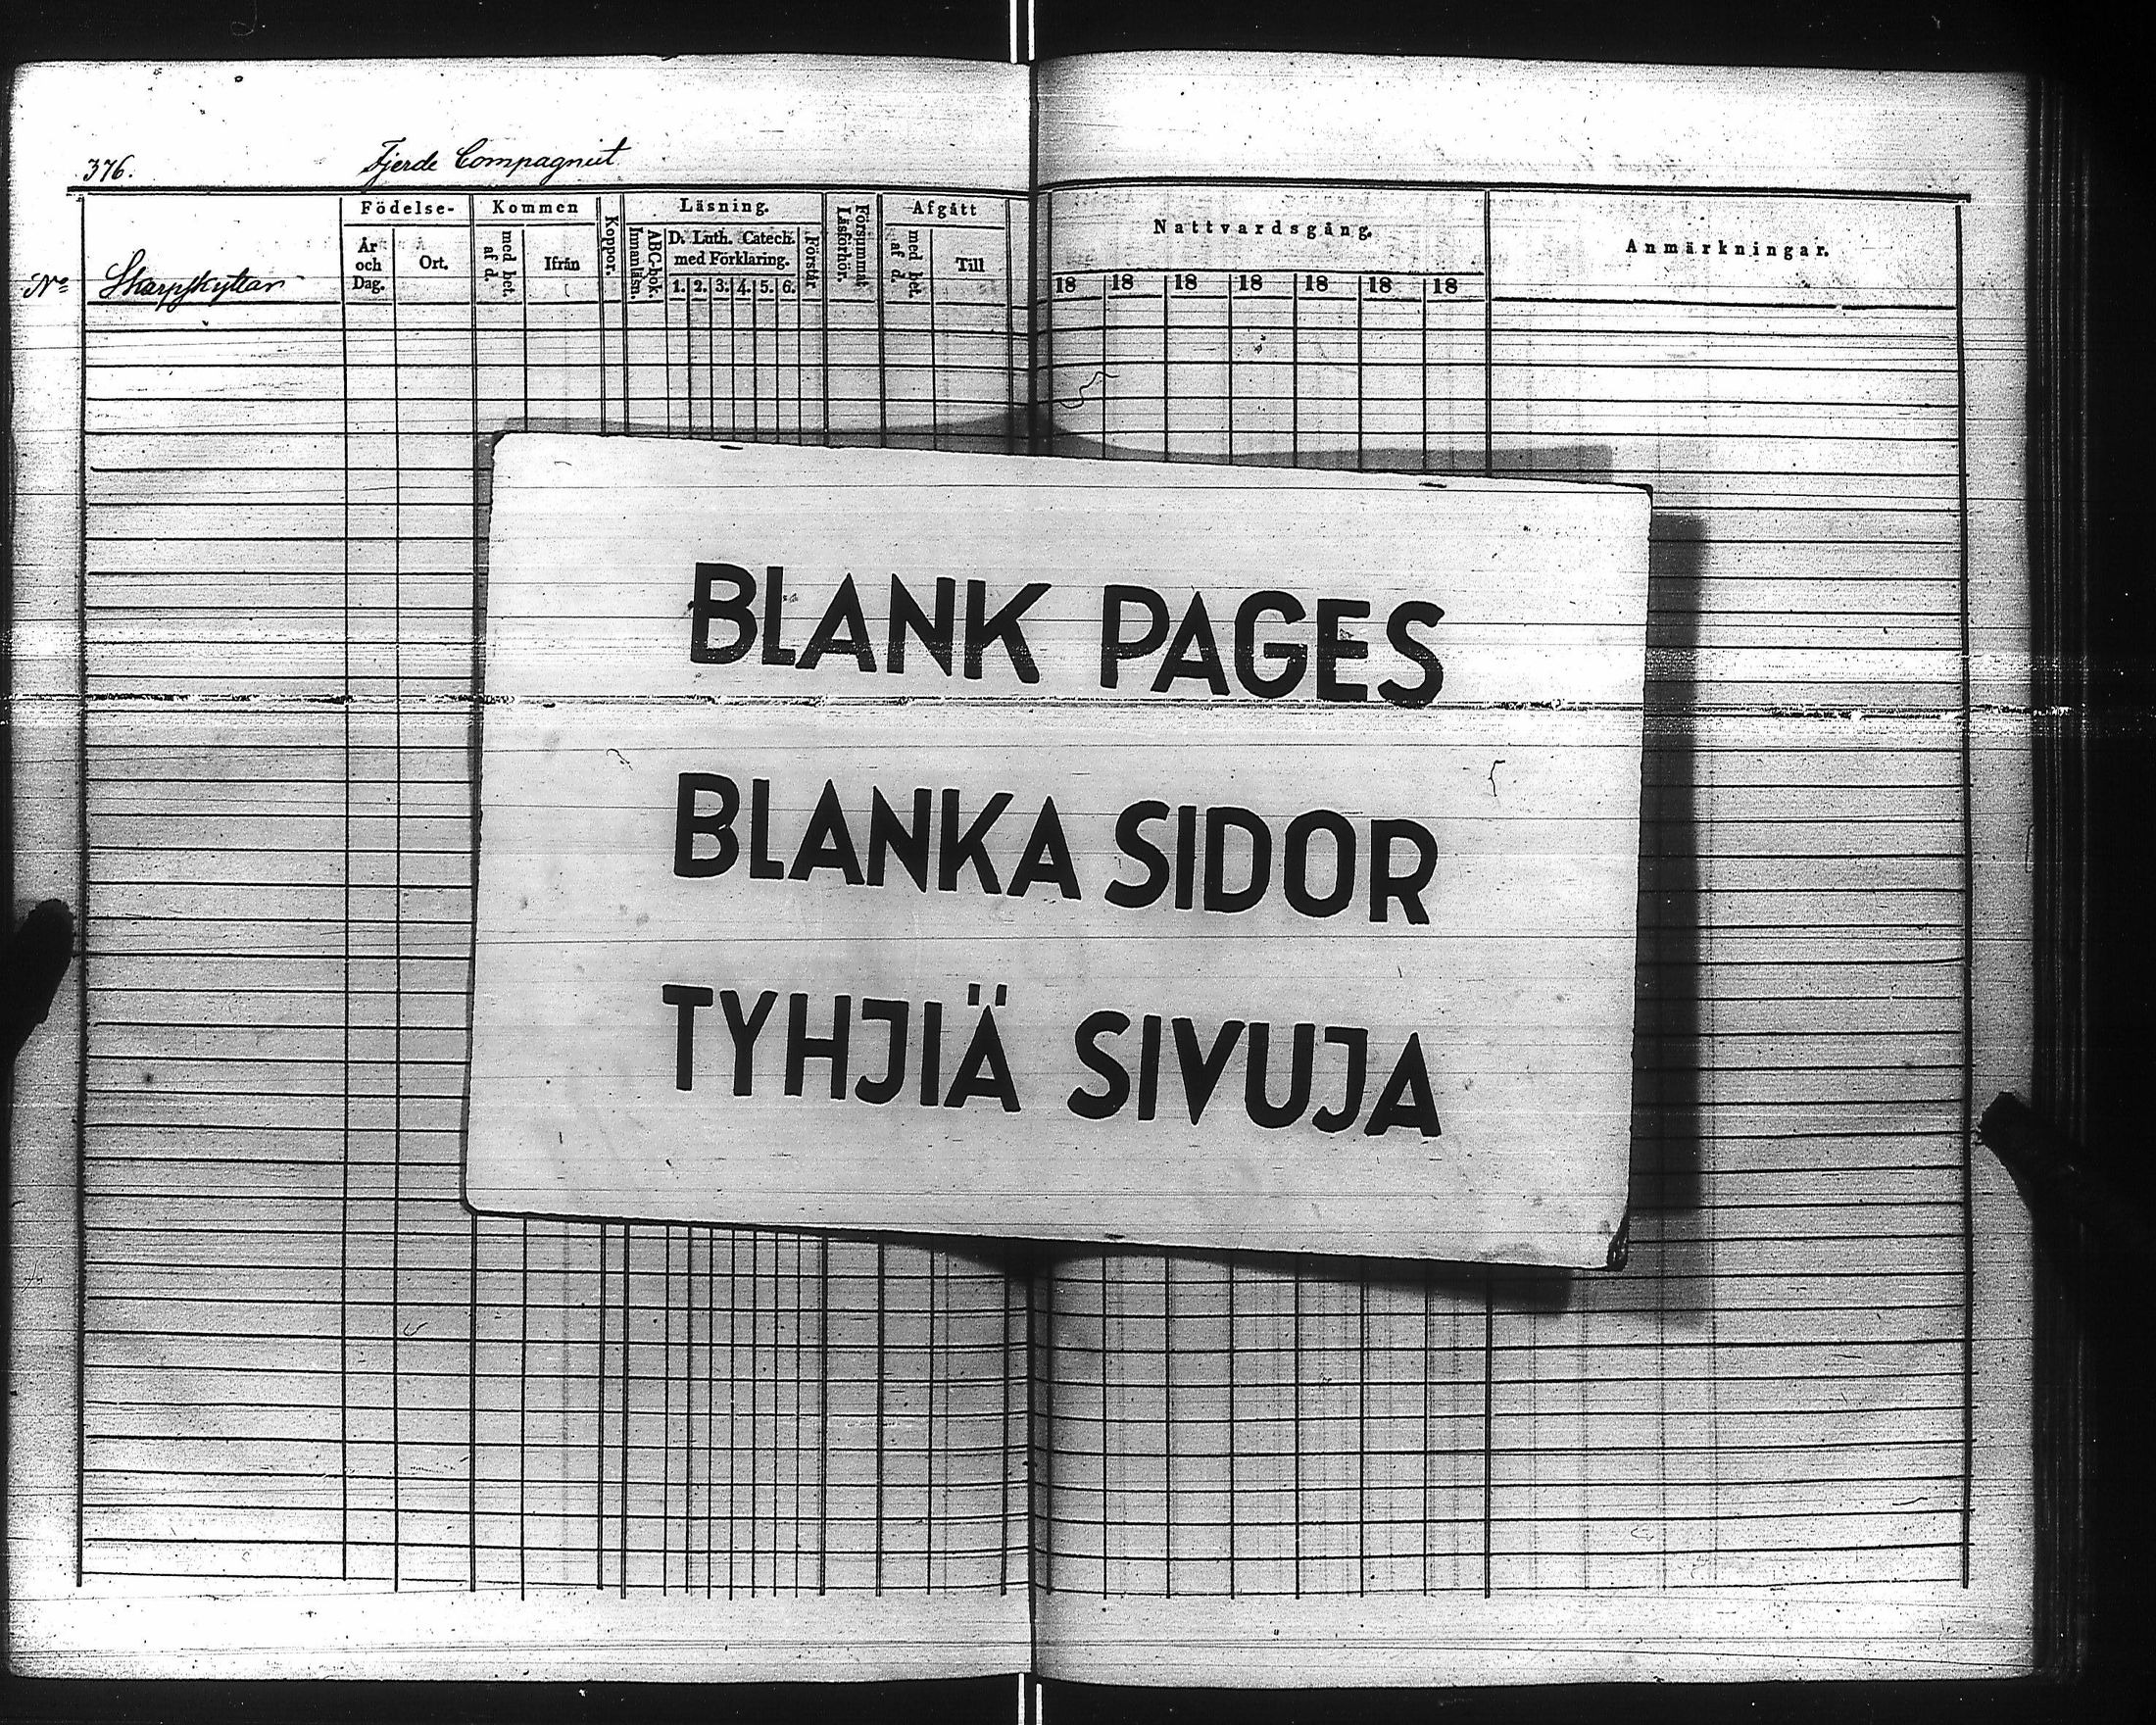 376. Fjerde Compagniet
No Skarpskyttar
Födelse-
År och Dag.
Ort.
Kommen
med bet. af d.
Ifrån
Koppor.
Läsning.
Innanläsn.
ABC-bok.
D. Luth. Catech. med Förklaring.
1. 2. 3. 4. 5. 6.
Förstår
Försummat Läsförhör.
Afgått
med bet. af d.
Till
Nattvardsgång.
18 18 18 18 18 18 18
Anmärkningar.
BLANK PAGES
BLANKA SIDOR
TYHJIÄ SIVUJA